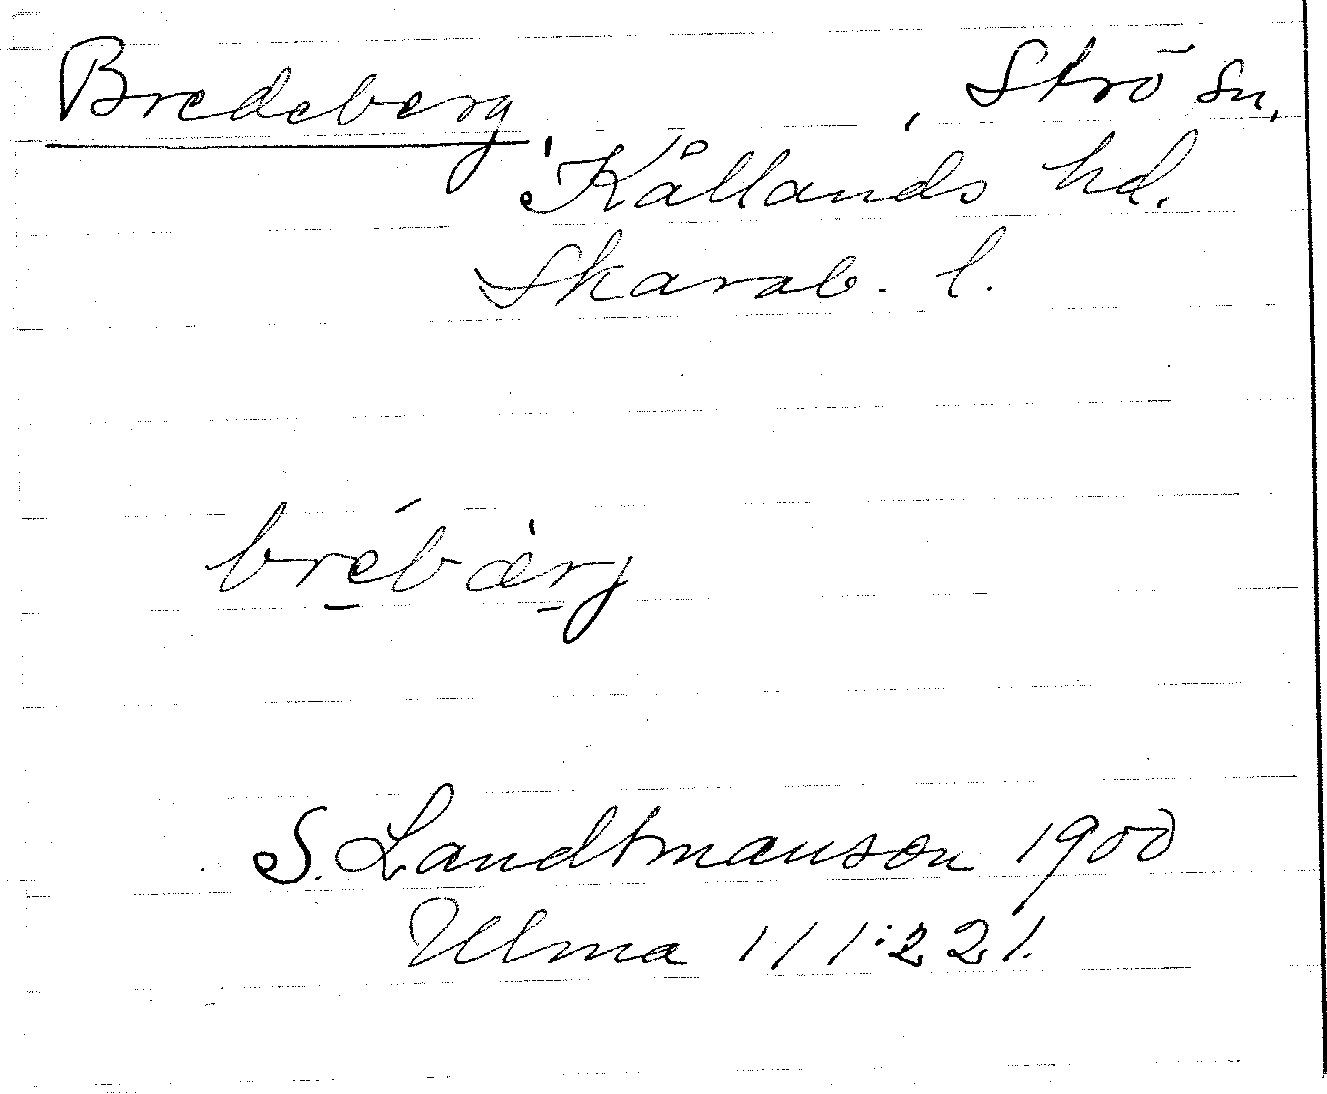 Bredeberg, Strö sn,
Kållands hd.
Skarab. l.
brébærj
S. Landtmanson 1900
Ulma 111:221.